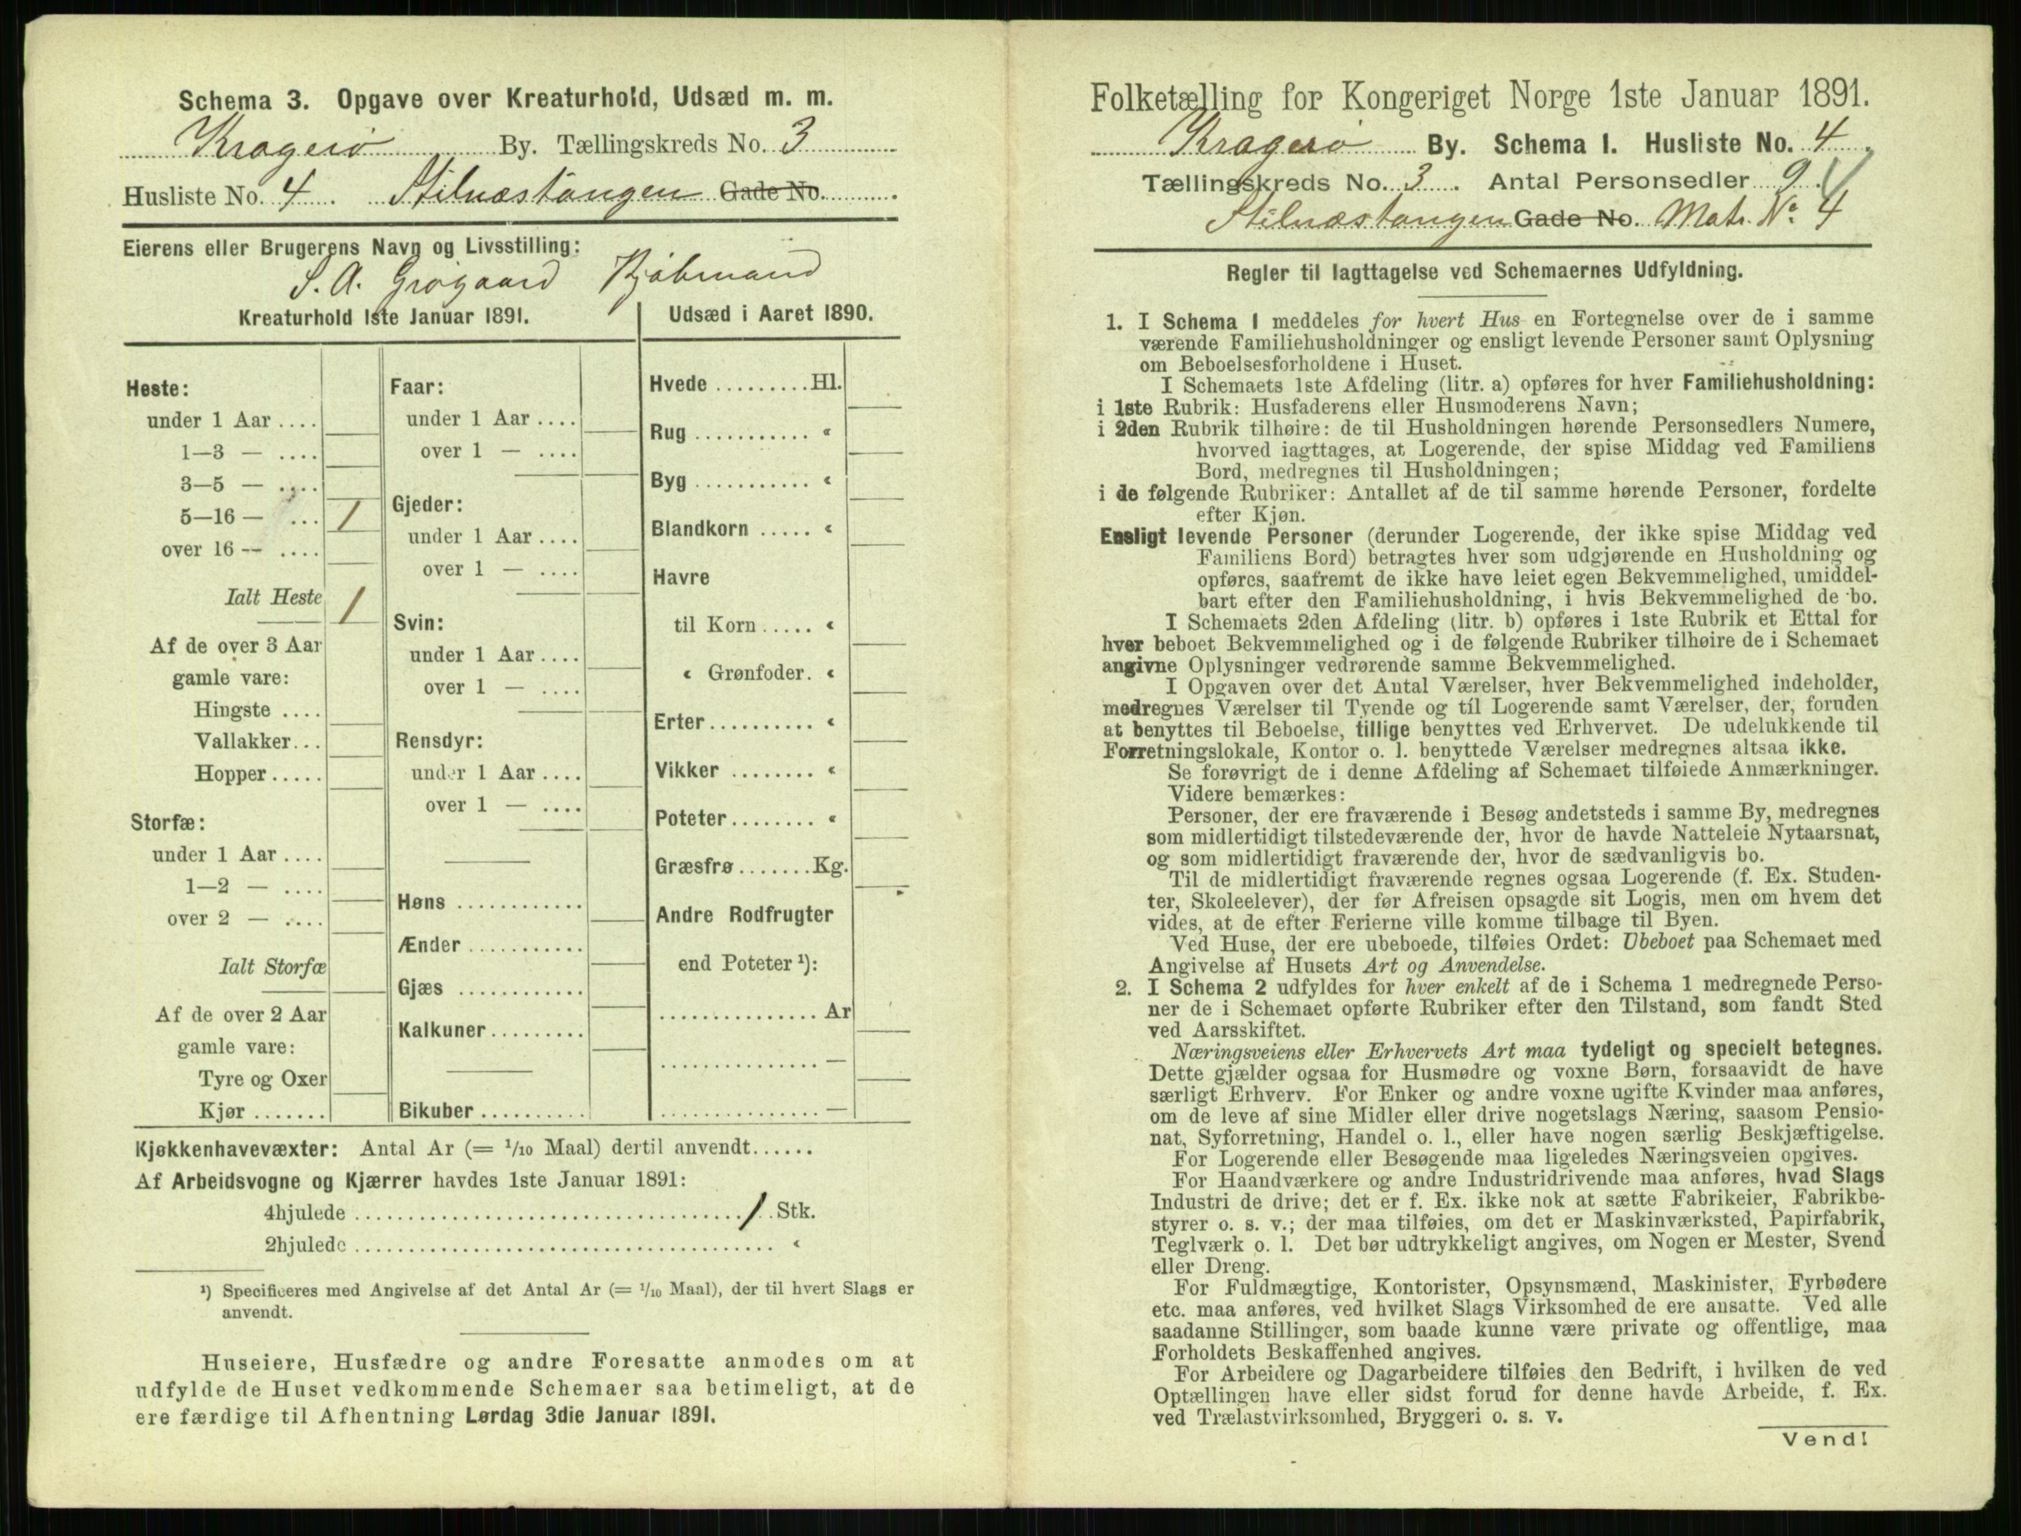 Schema 3. Opgave over Kreaturhold, Udsæd m. m.
Kragerø By. Tællingskreds No. 3
Husliste No. 4. Stilnæstangen Gade No.
Eierens eller Brugerens Navn og Livsstilling:
S. A. Grøgaard Kjøbmand
Kreaturhold 1ste Januar 1891.
Heste:
under 1 Aar ....
1—3 — ....
3—5 — ....
5—16 — ... 1
over 16 — ....
Ialt Heste 1
Af de over 3 Aar
gamle vare:
Hingste ....
Vallakker...
Hopper.....
Storfæ:
under 1 Aar ....
1—2 — ....
over 2 — ....
Ialt Storfæ
Af de over 2 Aar
gamle vare:
Tyre og Oxer
Kjør.......
Faar:
under 1 Aar ....
over 1 — ....
Gjeder:
under 1 Aar ....
over 1 — ....
Svin:
under 1 Aar ....
over 1 — ....
Rensdyr:
under 1 Aar ....
over 1 — ....
Høns ............
Ænder ...........
Gjæs ............
Kalkuner.........
Bikuber..........
Udsæd i Aaret 1890.
Hvede .........Hl.
Rug ........... «
Byg ........... «
Blandkorn ..... «
Havre
til Korn ..... «
« Grønfoder. «
Erter ......... «
Vikker ........ «
Poteter........ «
Græsfrø.......Kg.
Andre Rodfrugter
end Poteter ¹):
............... Ar
............... —
............... —
Kjøkkenhavevæxter: Antal Ar (= 1/10 Maal) dertil anvendt......
Af Arbeidsvogne og Kjærrer havdes 1ste Januar 1891:
4hjulede .................................. 1 Stk.
2hjulede .................................. «
¹) Specificeres med Angivelse af det Antal Ar (= 1/10 Maal), der til hvert Slags er
anvendt.
Huseiere, Husfædre og andre Foresatte anmodes om at
udfylde de Huset vedkommende Schemaer saa betimeligt, at de
ere færdige til Afhentning Lørdag 3die Januar 1891.
Folketælling for Kongeriget Norge 1ste Januar 1891.
Kragerø By. Schema I. Husliste No. 4
Tællingskreds No. 3. Antal Personsedler 9.
Stilnæstangen Gade No. Mat. No. 4
Regler til Iagttagelse ved Schemaernes Udfyldning.
1. I Schema 1 meddeles for hvert Hus en Fortegnelse over de i samme
værende Familiehusholdninger og ensligt levende Personer samt Oplysning
om Beboelsesforholdene i Huset.
I Schemaets 1ste Afdeling (litr. a) opføres for hver Familiehusholdning:
i 1ste Rubrik: Husfaderens eller Husmoderens Navn;
i 2den Rubrik tilhøire: de til Husholdningen hørende Personsedlers Numere,
hvorved iagttages, at Logerende, der spise Middag ved Familiens
Bord, medregnes til Husholdningen;
i de følgende Rubriker: Antallet af de til samme hørende Personer, fordelte
efter Kjøn.
Ensligt levende Personer (derunder Logerende, der ikke spise Middag ved
Familiens Bord) betragtes hver som udgjørende en Husholdning og
opføres, saafremt de ikke have leiet egen Bekvemmelighed, umiddel-
bart efter den Familiehusholdning, i hvis Bekvemmelighed de bo.
I Schemaets 2den Afdeling (litr. b) opføres i 1ste Rubrik et Ettal for
hver beboet Bekvemmelighed og i de følgende Rubriker tilhøire de i Schemaet
angivne Oplysninger vedrørende samme Bekvemmelighed.
I Opgaven over det Antal Værelser, hver Bekvemmelighed indeholder,
medregnes Værelser til Tyende og til Logerende samt Værelser, der, foruden
at benyttes til Beboelse, tillige benyttes ved Erhvervet. De udelukkende til
Forretningslokale, Kontor o. l. benyttede Værelser medregnes altsaa ikke.
Se forøvrigt de i denne Afdeling af Schemaet tilføiede Anmærkninger.
Videre bemærkes:
Personer, der ere fraværende i Besøg andetsteds i samme By, medregnes
som midlertidigt tilstedeværende der, hvor de havde Natteleie Nytaarsnat,
og som midlertidigt fraværende der, hvor de sædvanligvis bo.
Til de midlertidigt fraværende regnes ogsaa Logerende (f. Ex. Studen-
ter, Skoleelever), der før Afreisen opsagde sit Logis, men om hvem det
vides, at de efter Ferierne ville komme tilbage til Byen.
Ved Huse, der ere ubeboede, tilføies Ordet: Ubeboet paa Schemaet med
Angivelse af Husets Art og Anvendelse.
2. I Schema 2 udfyldes for hver enkelt af de i Schema 1 medregnede Perso-
ner de i Schemaet opførte Rubriker efter den Tilstand, som fandt Sted
ved Aarsskiftet.
Næringsveiens eller Erhvervets Art maa tydeligt og specielt betegnes.
Dette gjælder ogsaa for Husmødre og voxne Børn, forsaavidt de have
særligt Erhverv. For Enker og andre voxne ugifte Kvinder maa anføres,
om de leve af sine Midler eller drive nogetslags Næring, saasom Pensio-
nat, Syforretning, Handel o. l., eller have nogen særlig Beskjæftigelse.
For Logerende eller Besøgende maa ligeledes Næringsveien opgives.
For Haandværkere og andre Industridrivende maa anføres, hvad Slags
Industri de drive; det er f. Ex. ikke nok at sætte Fabrikeier, Fabrikbe-
styrer o. s. v.; der maa tilføies, om det er Maskinværksted, Papirfabrik,
Teglværk o. l. Det bør udtrykkeligt angives, om Nogen er Mester, Svend
eller Dreng.
For Fuldmægtige, Kontorister, Opsynsmænd, Maskinister, Fyrbødere
etc. maa anføres, ved hvilket Slags Virksomhed de ere ansatte. Ved alle
saadanne Stillinger, som baade kunne være private og offentlige, maa
Forholdets Beskaffenhed angives.
For Arbeidere og Dagarbeidere tilføies den Bedrift, i hvilken de ved
Optællingen have eller sidst forud for denne havde Arbeide, f. Ex.
ved Trælastvirksomhed, Bryggeri o. s. v.
Vend!